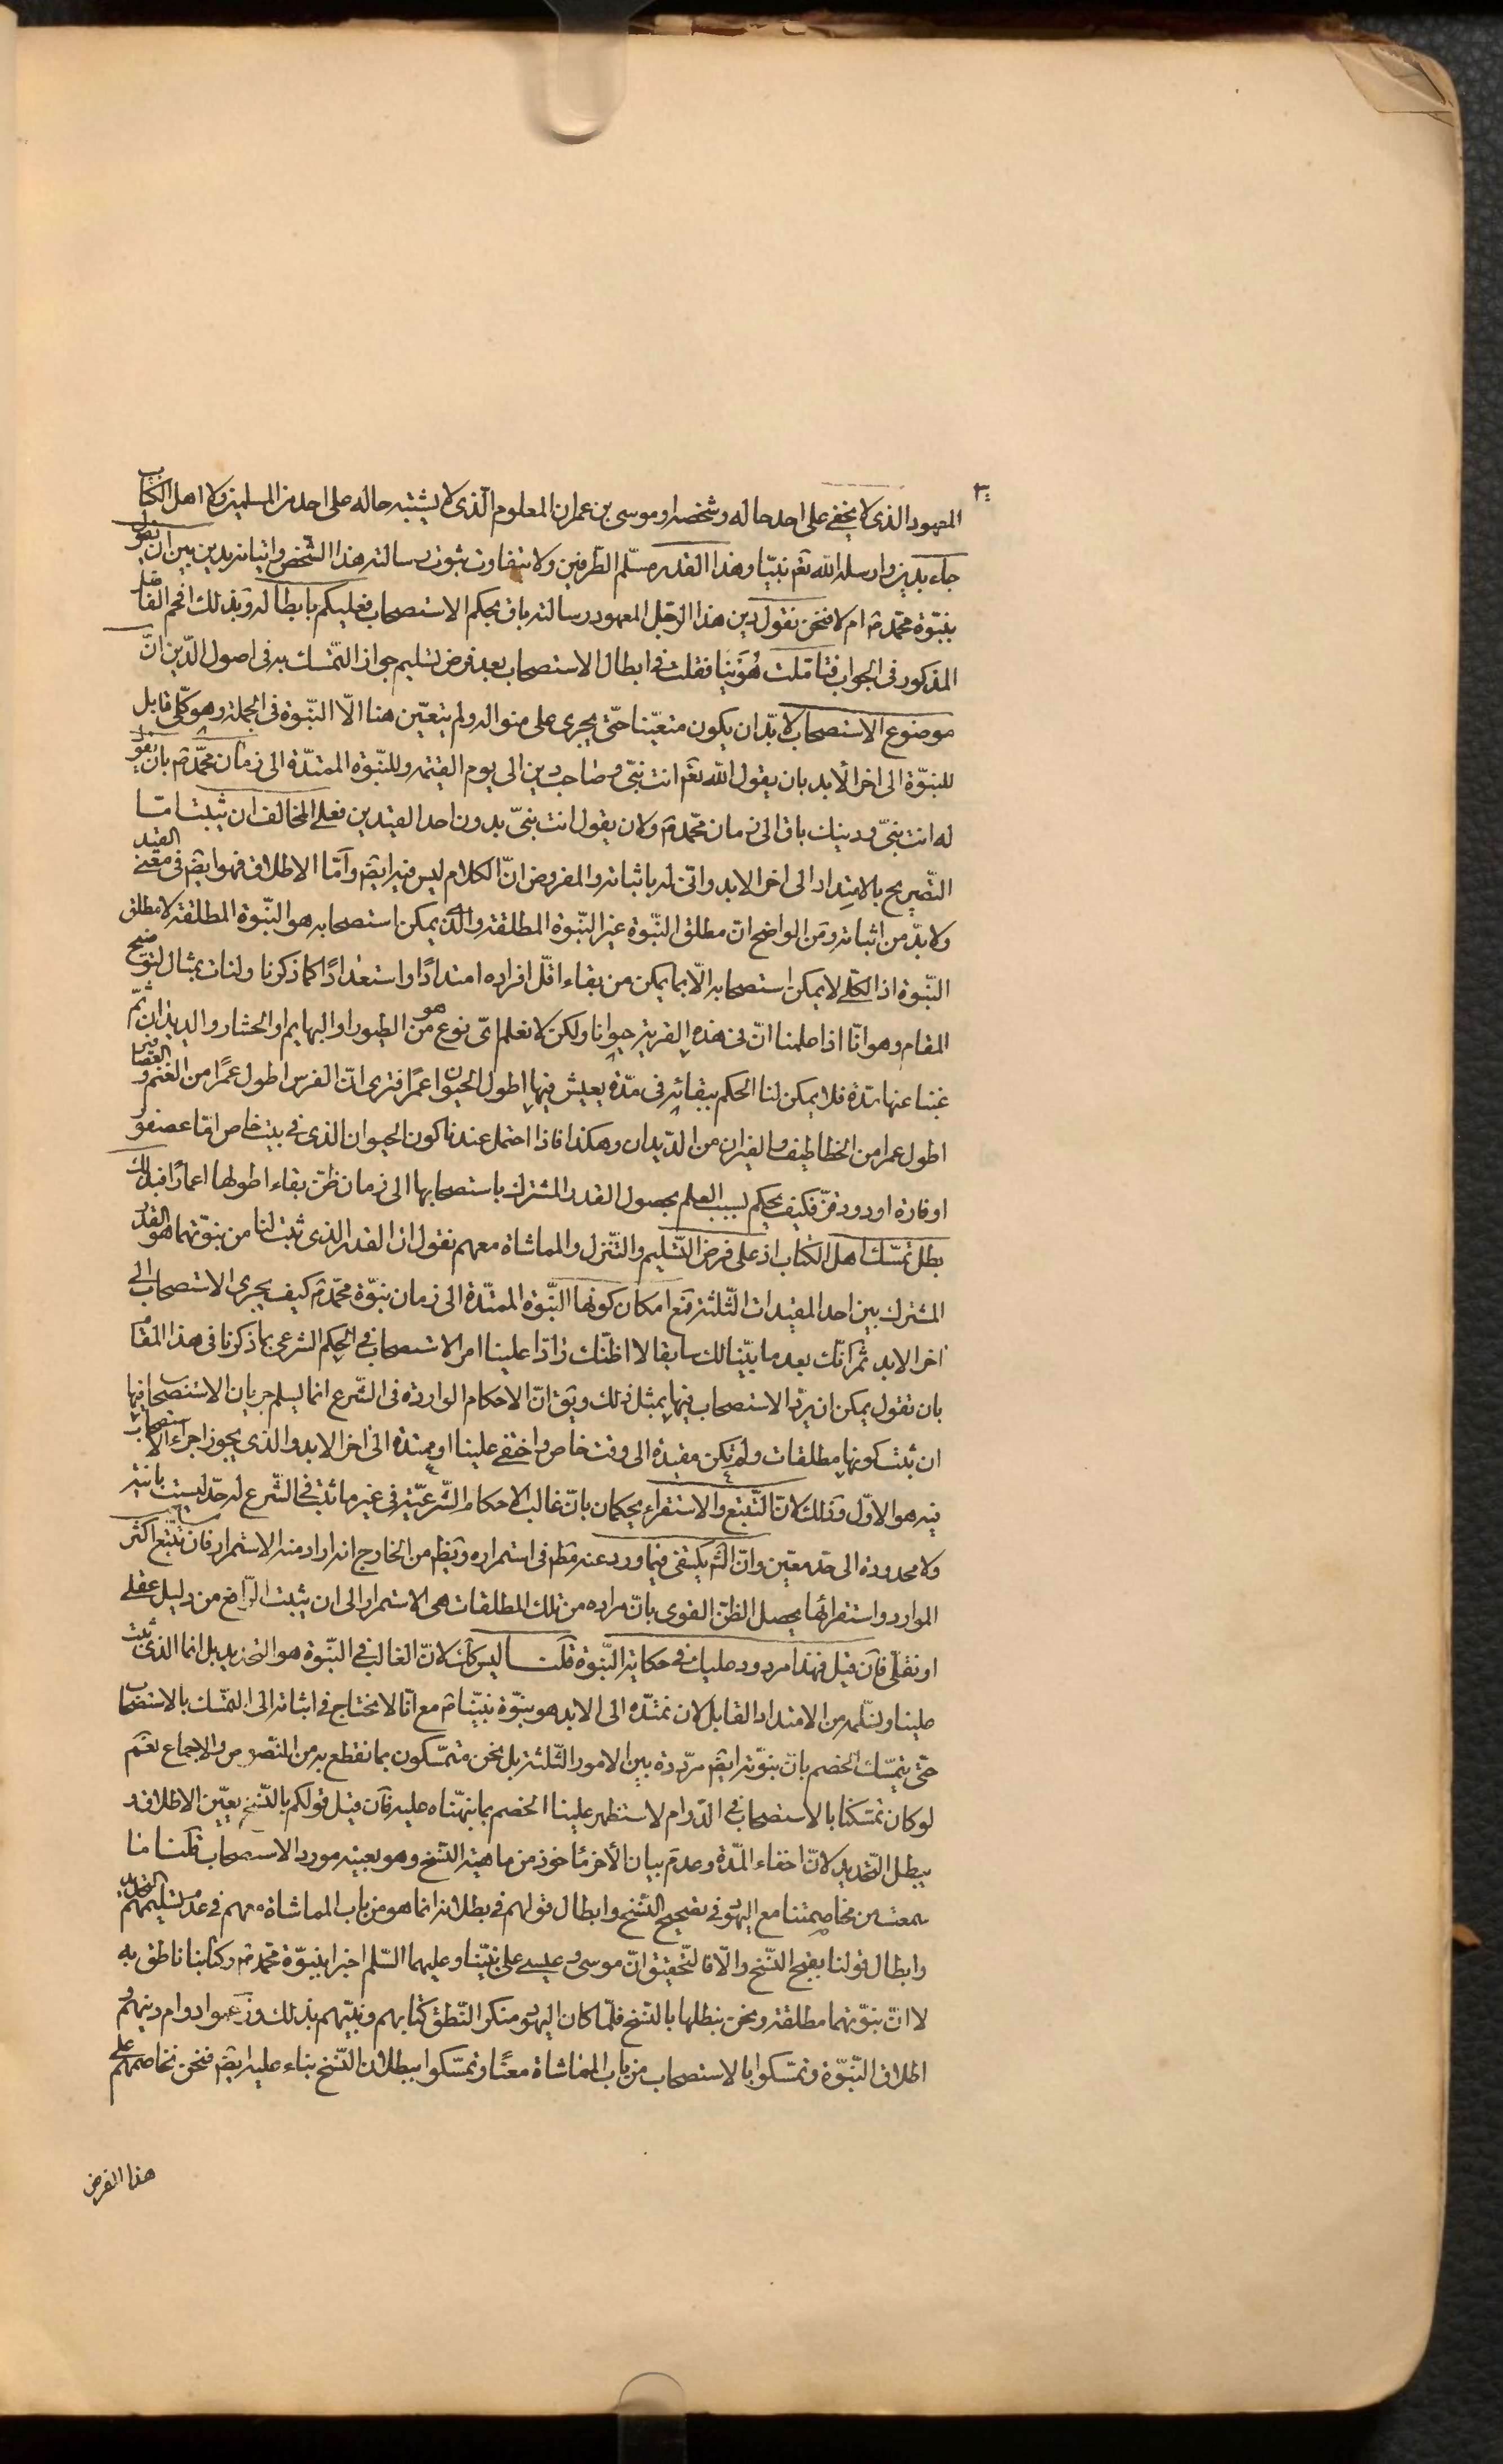 المعهود الذى لا يخفى على احد حاله وشخصه او موسى بن عمران المعلوم الذى لا يشتبه حاله على احد من المسلمين ولا اهل الكتاب
جاء بدين وارسله الله تعم نبيّا وهذا القدر مسلّم الطرفين ولا يتفاوت ثبوت رسالته هذا الشخص واتيانه بدين بين ان نقول
بنبوّة محمّد ص ام لا فنحن نقول دين هذا الرجل المعهود رسالته باق بحكم الاستصحاب فعليكم بابطاله وبذلك افحم الفاضل
المذكور فى الجواب فتاملت هُوَينا فقلت فى ابطال الاستصحاب بعد فرض تسليم جواز التّمسّك به فى اصول الدّين انّ
موضوع الاستصحاب لا بدّ ان يكون متعيّنا حتّى يجرى على منواله ولم يتعيّن هنا الّا النبّوة فى الجملة وهو كلّى قابل
للنبوّة الى اخر الأبد بان يقول الله تعم انت نبىّ وصاحب دين الى يوم القيمه وللنّبوّه الممتدّة الى زمان محمّد ص بان يقول
له انت نبىّ ودينك باق الى زمان محمّد ص ولان يقول انت نبىّ بدون احد القيدين فعلى المخالف ان يثبت امّا
التّصريح بالامتداد الى اخر الابد وانّى له باثباته والمفروض انّ الكلام ليس فيه ايضم وامّا الاطلاق فهو ايضم فى معنى القيد
ولا بدّ من اثباته ومن الواضح انّ مطلق النّبوّة غير النّبوّة المطلقة والّذى يمكن استصحابه هو النّبوّة المطلقة لا مطلق
النّبوّة اذ الكلّى لا يمكن استصحابه الّا بما يمكن من بقاء اقلّ افراده امتدادًا واستعدادًا كما ذكرنا ولنات بمثال لتوضيح
المقام وهو انّا اذا علمنا انّ فى هذه القرية حيوانا ولكن لا نعلم اىّ نوع هو من الطيور او البهايم او الحشار والديدان ثمّ
غبنا عنها مدّة فلا يمكن لنا الحكم ببقائه فى مدّة يعيش فيها اطول الحيوان عمرًا فترى انّ الفرس اطول عمرًا من الغنم والعصافير
اطول عمرا من الخطاطيف والفيران من الدّيدان وهكذا فاذا احتمل عندنا كون الحيوان الذى فى بيت خاص امّا عصفور
او فارة او دود قزّ فكيف يحكم بسبب العلم بحصول القدر المشترك باستصحابها الى زمان ظنّ بقاء اطولها اعمارًا فبذلك
بطل تمسّك اهل الكتاب اذ على فرض التّسليم والتّنزل والمماشاة معهم نقول ان القدر الذى ثبت لنا من نبوّتهما هو القدر
المشترك بين احد المقيدات الثّلثة فمع امكان كونها النّبوّة الممتدّة الى زمان نبوّة محمّد ص كيف يجرى الاستصحاب الى
اخر الابد ثمّ انّك بعد ما بيّنا لك سابقا لا اظنّك رادّا علينا امر الاستصحاب فى الحكم الشرعى بما ذكرنا فى هذا المقام
بان تقول يمكن ان يردّ الاستصحاب فيها بمثل ذلك ويق انّ الاحكام الواردة فى الشّرع انما يسلم جريان الاستصحاب فيها
ان ثبت كونها مطلقات ولم تكن مقيدة الى وقت خاص واختفى علينا او ممتدة الى اخر الابد والذى يجوز اجراء الاستصحاب
فيه هو الاوّل وذلك لانّ التّتبّع والاستقراء يحكمان بانّ غالب الاحكام الشّرعيّة فى غير ما ثبت فى الشّرع له حدّ ليست بانيّة
ولا محدودة الى حد معيّن وانّ الشم يكتفى فيما ورد عنه مطم فى استمراره ويظم من الخارج انه اراد منه الاستمرار فان تتبّع اكثر
الموارد واستقرائها يحصل الظن القوى بانّ مراده من تلك المطلقات هى الاستمرار الى ان يثبت الرّافع من دليل عقلى
او نقلىّ فان قيل فهذا مردود عليك فى حكاية النّبوّة قلت ليس كك لانّ الغالب فى النّبوّة هو التحديد بل انما الذى ثبت
علينا ونسلّمه من الامتداد القابل لان نمتدّه الى الابد هو نبوّة نبيّنا ص مع انّا لا نحتاج فى اثباته الى التمسّك بالاستصحاب
حتى يتمسّك الخصم بانّ نبوّته ايضم مرّددة بين الامور الثّلثة بل نحن متمسّكون بما نقطع به من النّصوص والاجماع نعم
لو كان تمسّكنا بالاستصحاب فى الدّوام لاستظهر علينا الخصم بما نبهّناه عليه فان قيل قولكم بالنّسخ يعيّن الاطلاق و
يبطل التّحديد لانّ اخفاء المدّة وعدم بيان الأخر مأخوذ من ماهية النّسخ وهو بعينه مورد الاستصحاب قلنا ما
سمعت من مخاصمتنا مع اليهود فى تصحيح النّسخ وابطال قولهم فى بطلانه انما هو من باب المماشاة معهم فى عدم تسليمهم التحديد
وابطال قولنا بقبح النّسخ والّا فالتّحقيق انّ موسى وعيسى على نبيّنا وعليهما السّلم اخبرا بنبوّة محمّد ص وكتابنا ناطق به
لا انّ نبوّتهما مطلقة ونحن نبطلها بالنّسخ فلمّا كان اليهود منكر النّطق كتابهم ونبيّهم بذلك وزعموا دوام دينهم و
اطلاق النّبوّة وتمسّكوا بالاستصحاب من باب المماشاة معنًا وتمسّكوا ببطلان النّسخ بناء عليه ايضم فنحن نخاصمهم على
هذا الفرض